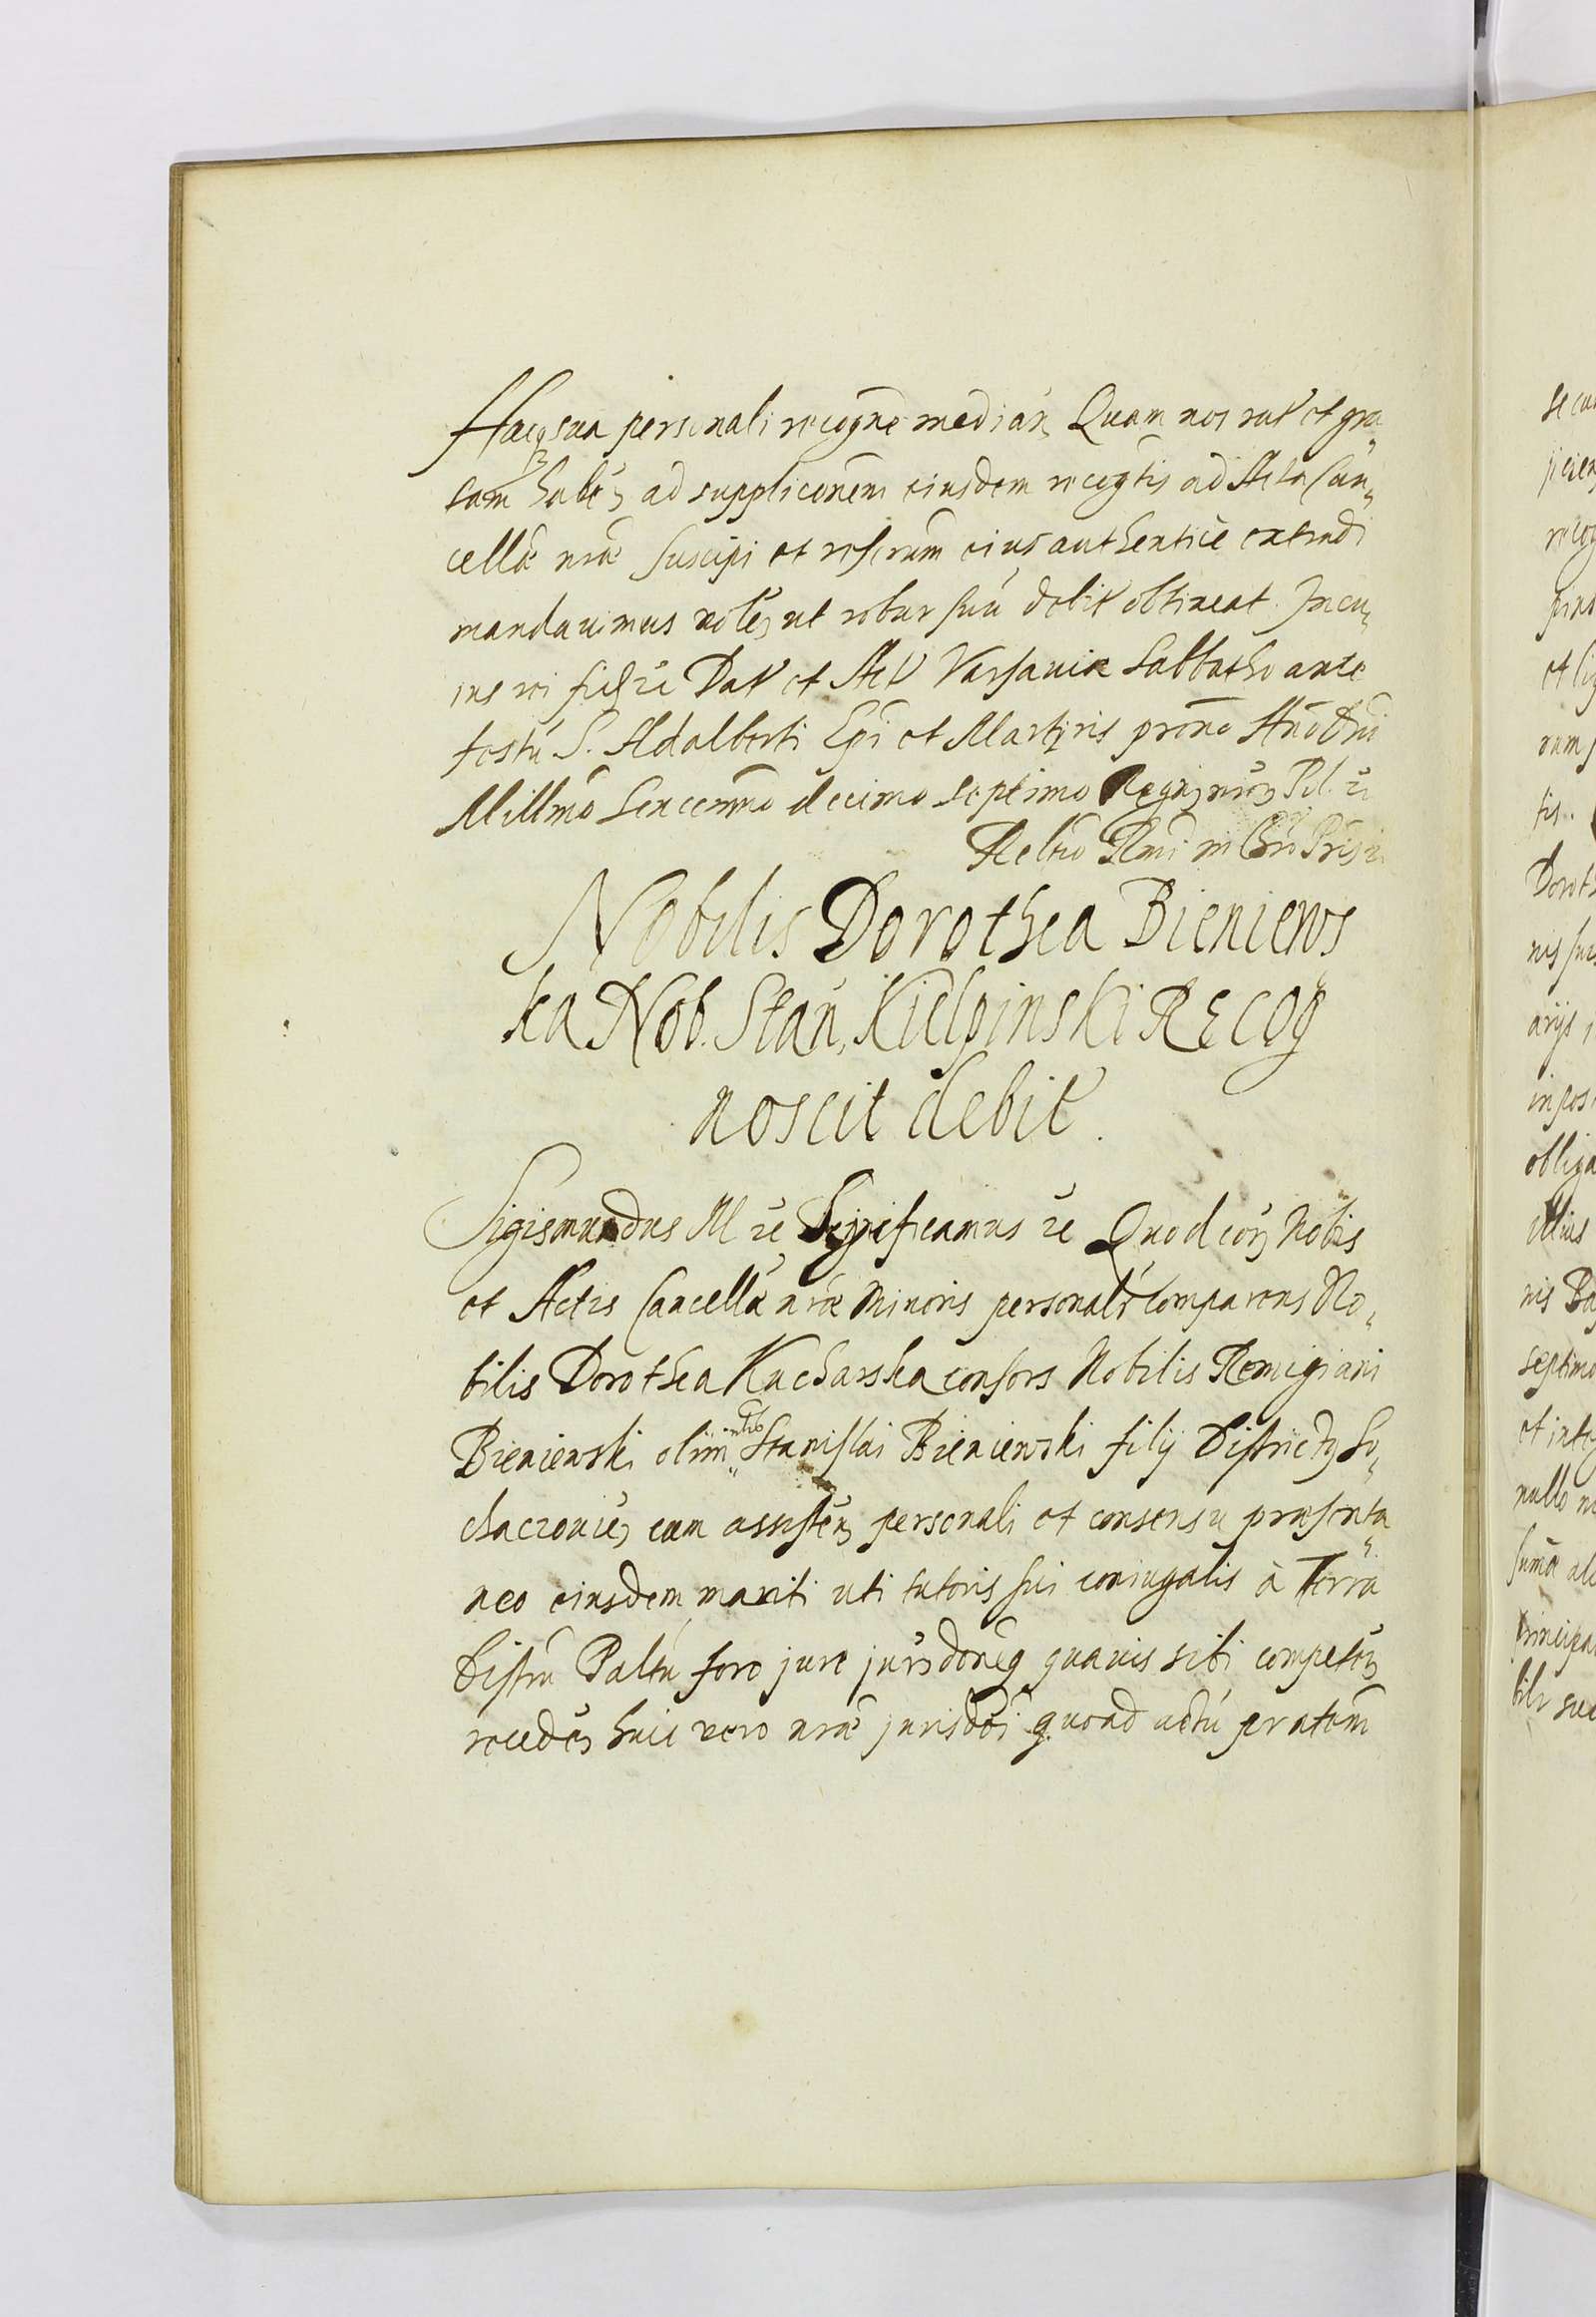 Hacq sua personali recogne median Quam nos rat et gra„
tam haben ad suppliconem eiusdem recogtis ad Acta Can„
cellæ nræ suscipi et rescrum eius authentice extradi
mandauimus volen ut robur suu debit obtineat. In cu„
ius rei fid ꝛc Dat et Act Varsauiæ Sabbatho ante
festu S. Adalberti Epi et Martyris proxo Ano Dni
Millmo Sexcenmo decimo septimo Regn nror Pol. ꝛc
Relao Rndi in Chro Pris ꝛc
Nobilis Dorothea Bieniews
ka Nob. Stan, Kielpinski Recog
noscit debit.
Sigismundus III ꝛc Significamus ꝛc Quod cor Nobis
et Actis Cancellæ nræ Minoris personalr comparens No„
bilis Dorothea Kucharska consors Nobilis Remigiani
Bieniewski olim Stanislai Bieniewski filij Districty So„
chaczouien cum assisten personali et consensu præsenta„
neo eiusdem mariti uti tutoris sui coniugalis à Terra
Distru Paltu foro jure jurisdoneq quauis sibi competen
receden huic vero nræ jurisdoi quoad actu præntem
se cu
recog
et
tis..
Doroth
nis
arijs
in pos
obliga
illius
nis
septimo
et
nullo
suma
principa